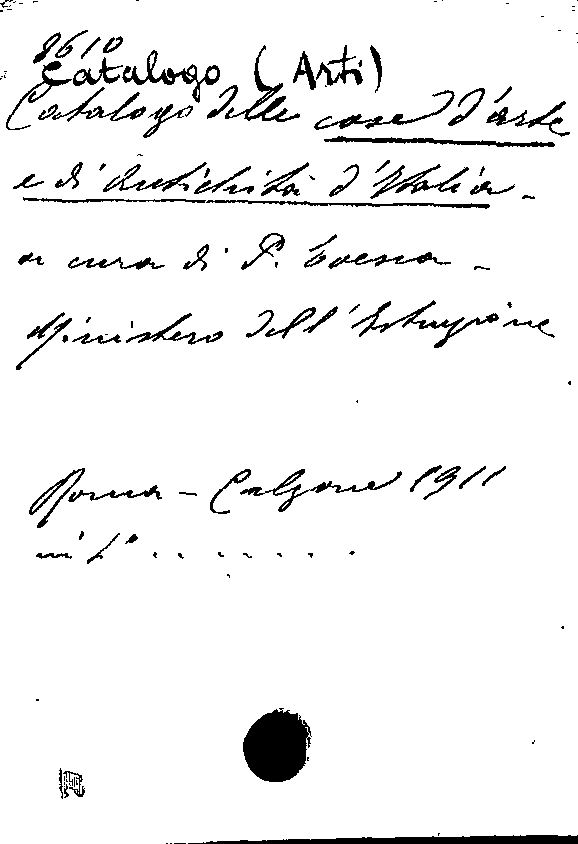 8610
Catalogo (Arti)
Catalogo delle cose d'arte
e di antichità d'Italia -
a cura di P. Toesca -
Ministero dell'Istruzione
Roma - Calzone 1911
in 4° . . . . . . .